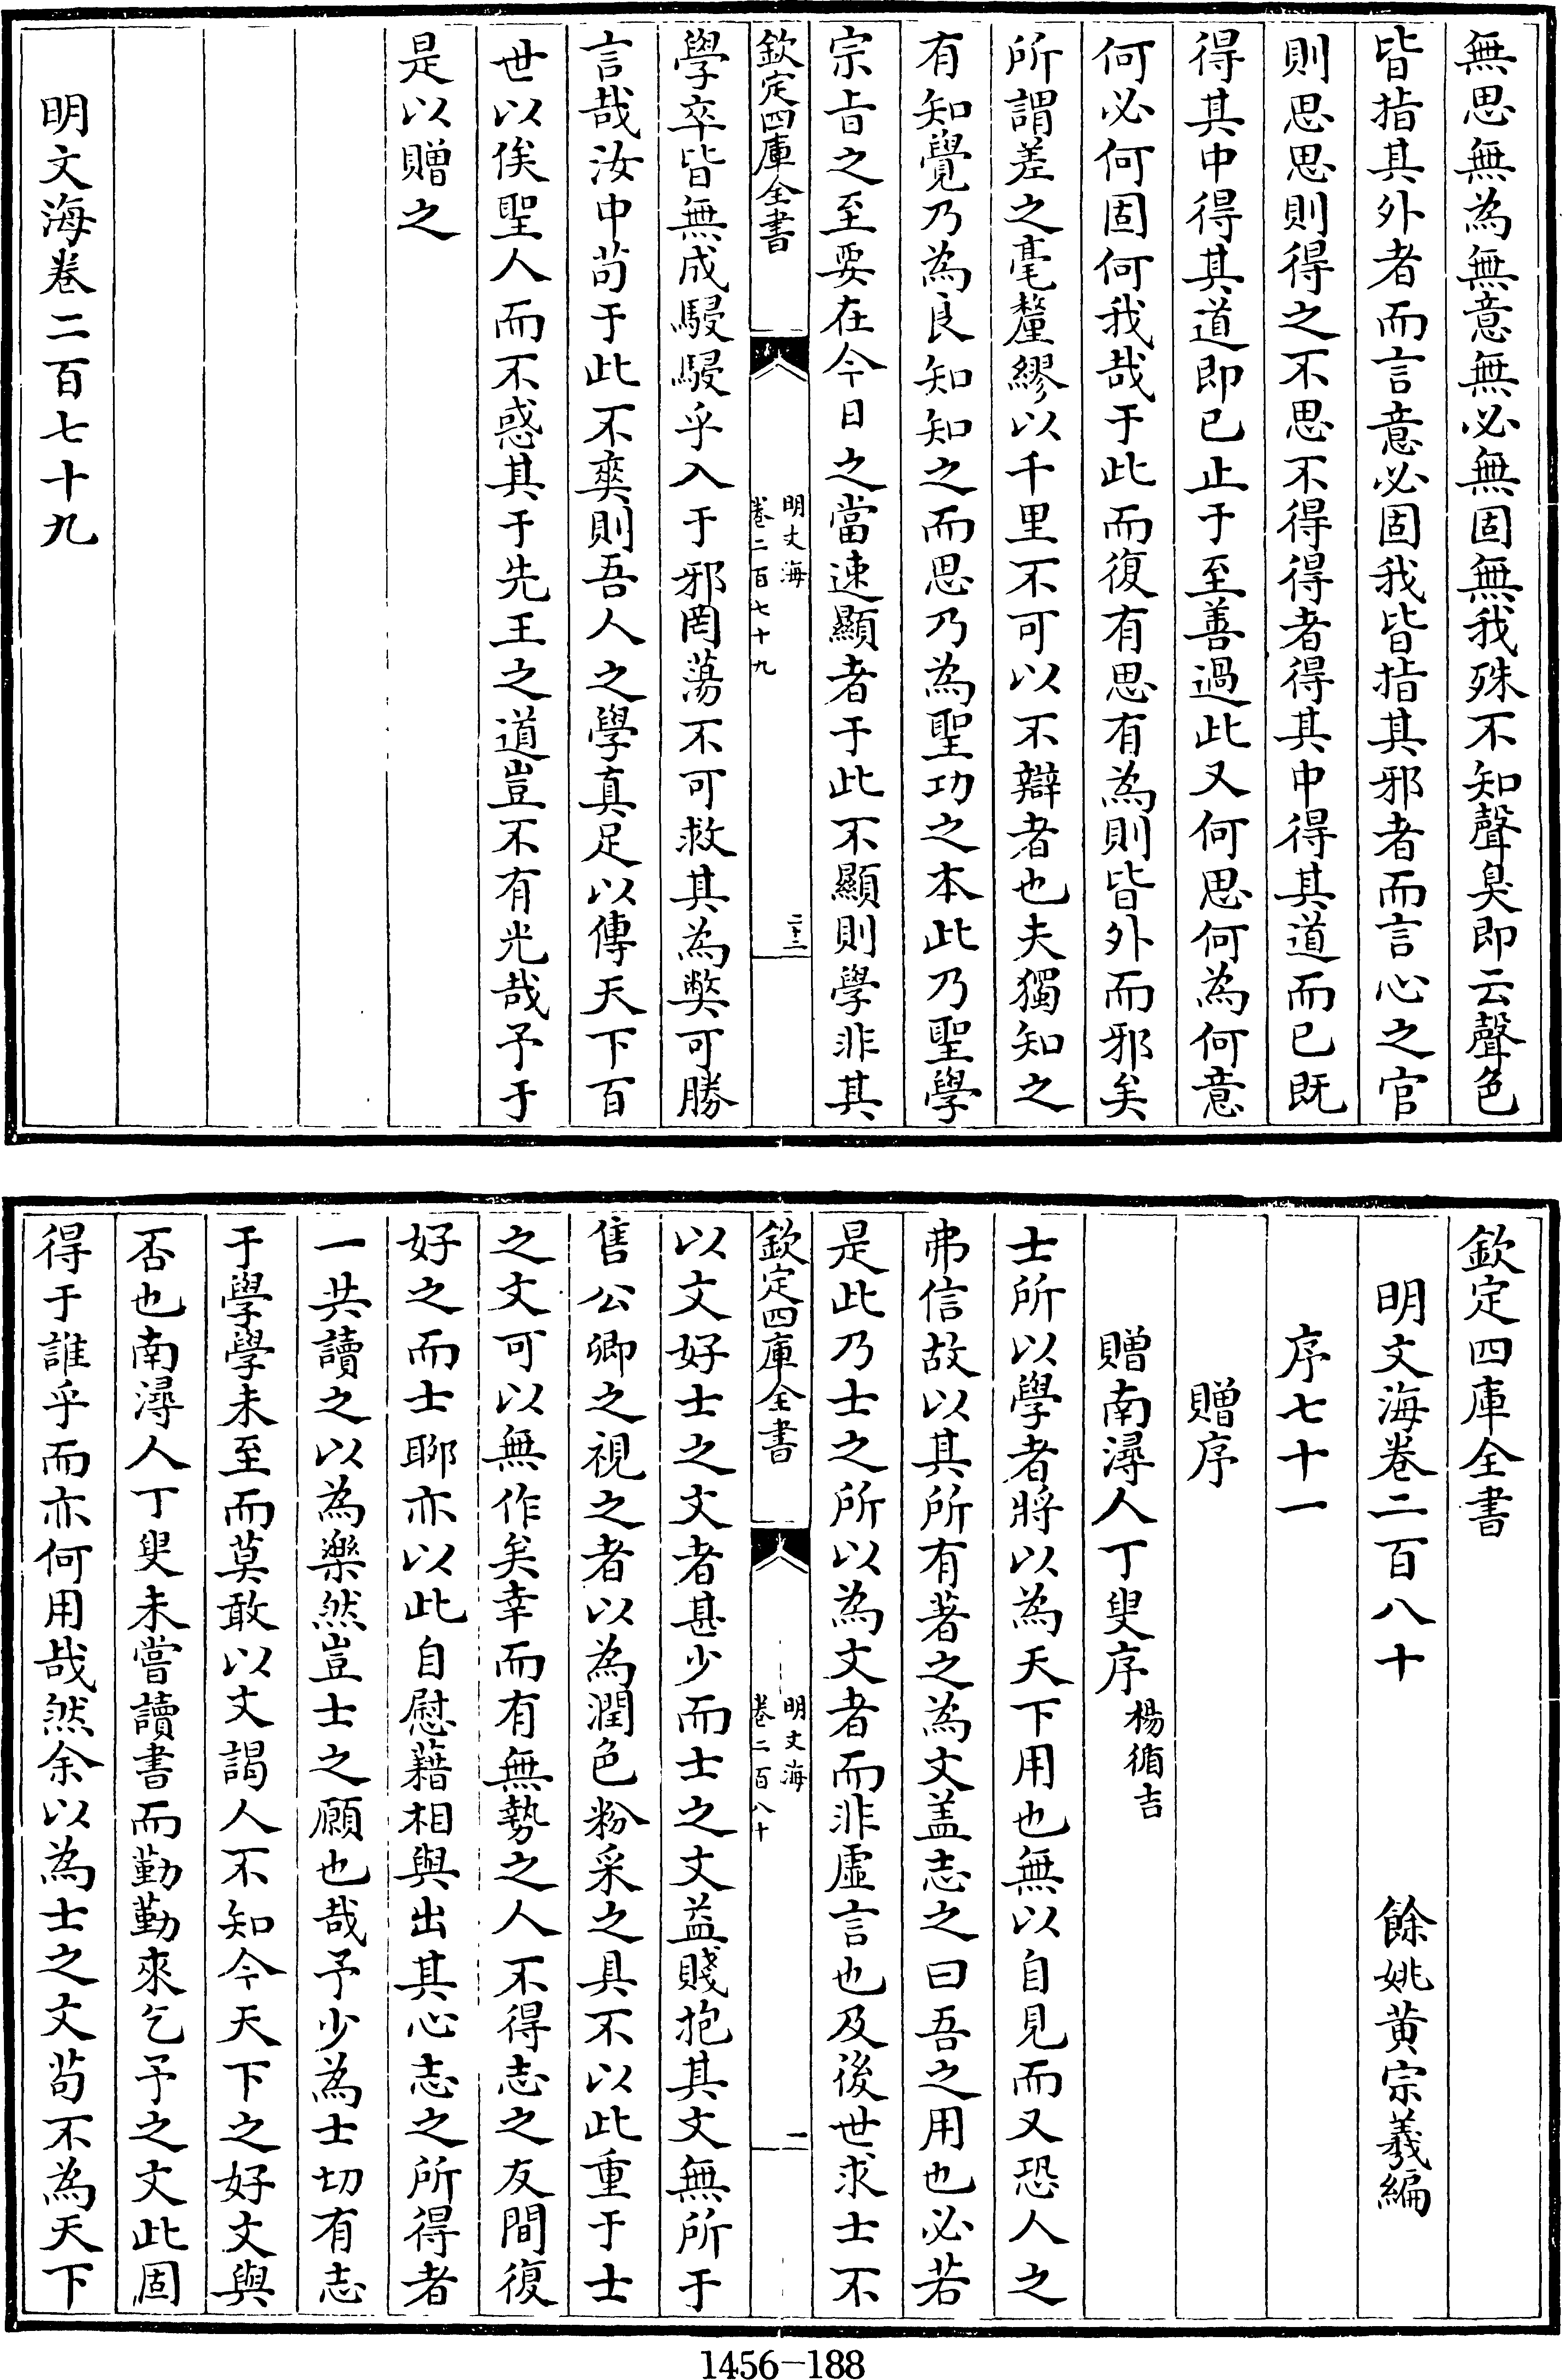 無思無為無意無必無固無我殊不知聲臭即云聲色
皆指其外者而言意必固我皆指其邪者而言心之官
則思思則得之不思不得得者得其中得其道而已既
得其中得其道即已止于至善過此又何思何為何意
何必何固何我哉于此而復有思有為則皆外而邪矣
所謂差之毫釐繆以千里不可以不辯者也夫獨知之
有知覺乃為良知知之而思乃為聖功之本此乃聖學
宗㫖之至要在今日之當速顯者于此不顯則學非其
欽定四庫全書
明文海
卷二百七十九
二十二
學卒皆無成駸駸乎入于邪罔蕩不可救其為弊可勝
言哉汝中茍于此不爽則吾人之學真足以傳天下百
世以俟聖人而不惑其于先王之道豈不有光哉予于
是以贈之
明文海卷二百七十九
欽定四庫全書
明文海卷二百八十
餘姚黄宗羲編
序七十一
贈序
贈南潯人丁叟序
楊循吉
士所以學者將以為天下用也無以自見而又恐人之
弗信故以其所有著之為文盖志之曰吾之用也必若
是此乃士之所以為文者而非虚言也及後世求士不
欽定四庫全書
明文海
卷二百八十
一
以文好士之文者甚少而士之文益賤抱其文無所于
售公卿之視之者以為潤色粉采之具不以此重于士
之文可以無作矣幸而有無勢之人不得志之友間復
好之而士聊亦以此自慰藉相與出其心志之所得者
一共讀之以為樂然豈士之願也哉予少為士切有志
于學學未至而莫敢以文謁人不知今天下之好文與
否也南潯人丁叟未嘗讀書而勤勤來乞予之文此固
得于誰乎而亦何用哉然余以為士之文茍不為天下
1456-188